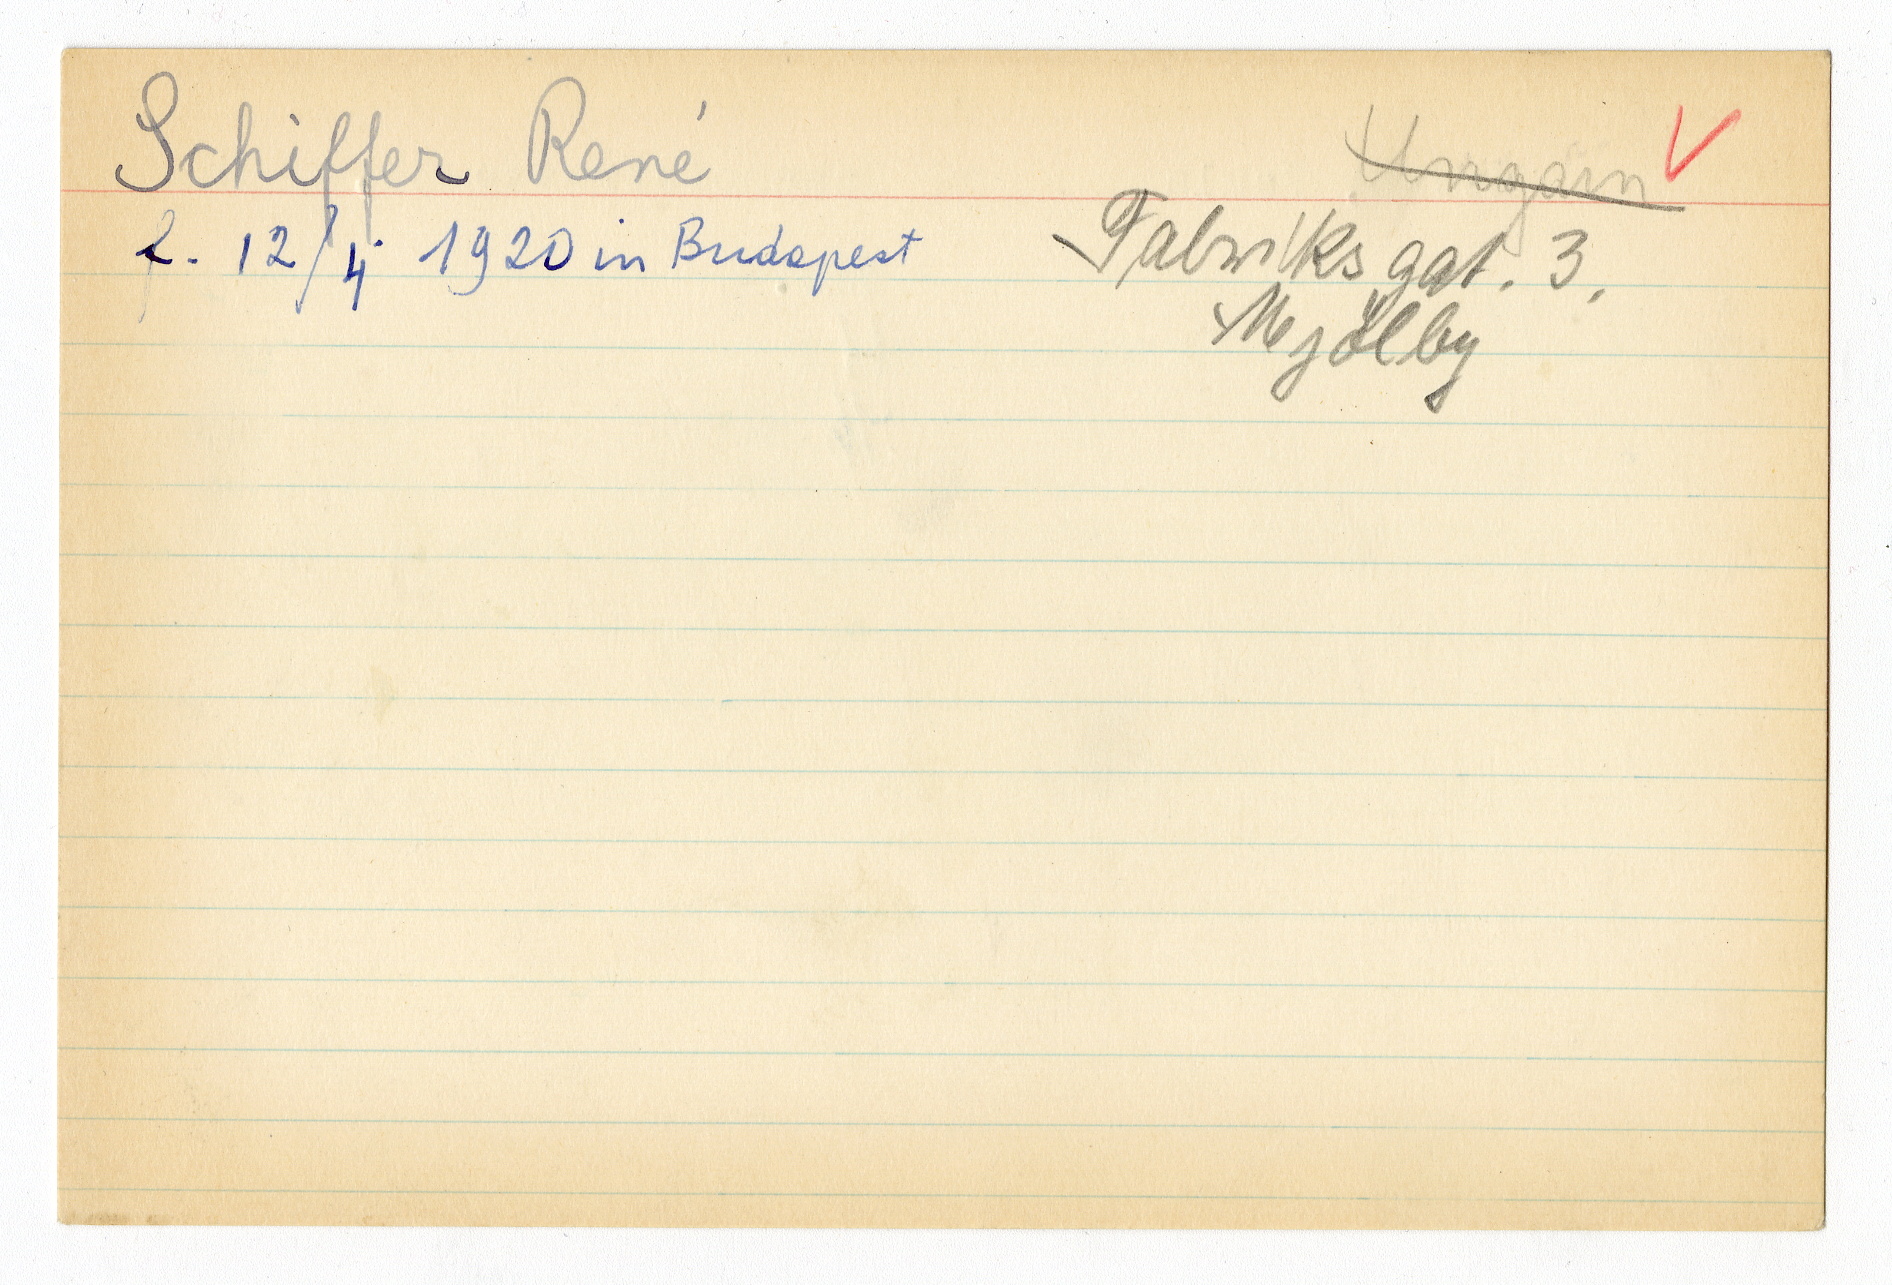 Schiffer René
Ungarn
f. 12/4 1920 in Budapest
Fabriksgat. 3,
Mjölby